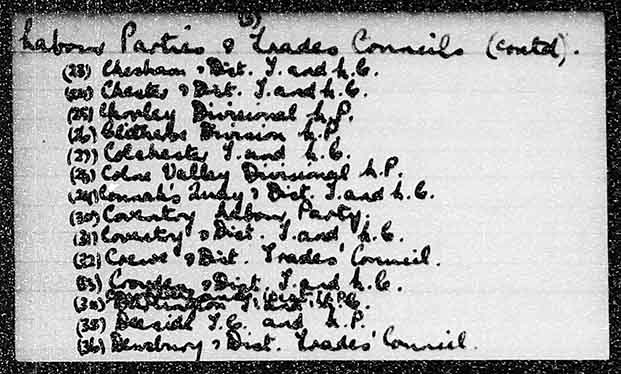 (3)
Labour Parties & Trades Councils (contd).
(23) Chesham & Dist. T. and L.C.
(24) Chester & Dist. T. and L.C.
(25) Chorley Divisional L.P.
(26) Clitheroe Division L.P.
(27) Colchester T. and L.C.
(28) Colne Valley Divisional L.P.
(29) Connah's Quay & Dist. T. and L.C.
(30) Coventry Labour Party.
(31) Coventry & Dist. T. and L.C.
(32) Crewe & Dist. Trades' Council.
(33) Croydon & Dist. T. and L.C.
(34) Darlington
(35) Deeside T.C. and L.P.
(36) Dewsbury & Dist. Trades' Council.